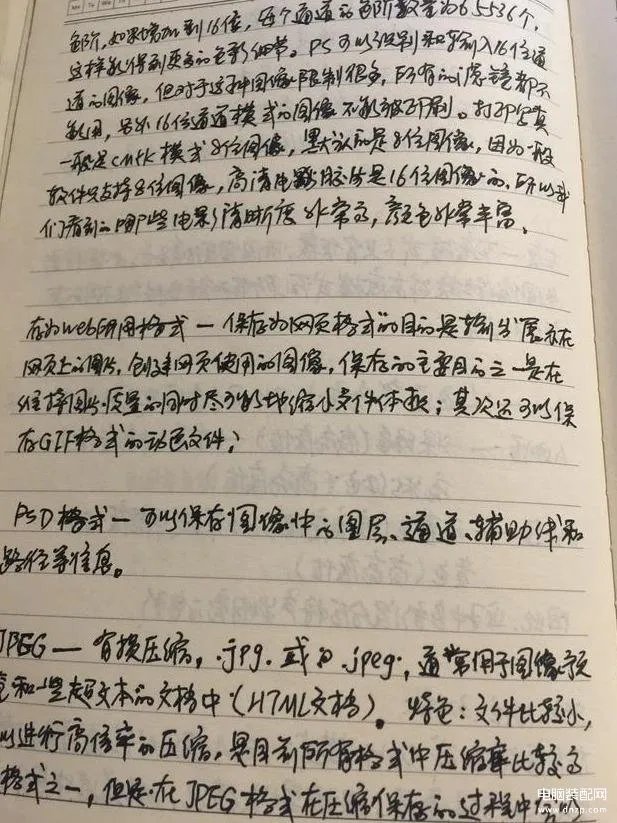 色阶,如果增加到16位,每个通道的色阶数量为65536个,
这样能得到更多的色彩细节。PS可以识别和输入16位通
道的图像,但对于这种图像限制很多,所有的滤镜都不
能用,另外16位通道模式的图像不能被印刷。打印写真
一般是CMYK模式8位图像,默认的是8位图像,因为一般
软件只支持8位图像,高清电影胶片是16位图像的,所以我
们看到的哪些电影清晰度非常高,颜色非常丰富。
存为web所用格式—保存为网页格式的目的是输出展示在
网页上的图片,创建网页使用的图像,保存的主要目的之一是在
维持图片质量的同时尽可能地缩小文件体积;其次还可以保
存GIF格式的动态文件;
PSD格式—可以保存图像中的图层、通道、辅助线和
路径等信息。
JPEG—有损压缩,.jpg.或为.jpeg.,通常用于图像预
览和一些超文本的文档中(HTML文档)。特色:文件比较小,
以进行高倍率的压缩,是目前所有格式中压缩率比较高
格式之一,但是在JPEG格式在压缩保存的过程中
电脑装配网
www.dnzp.com